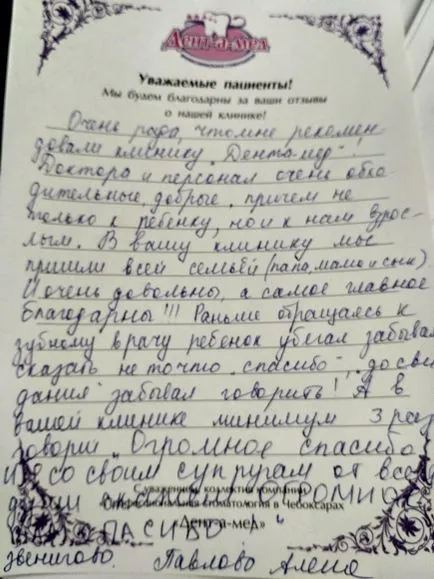 Дент-а-мед
Уважаемые пациенты!
Мы будем благодарны за ваши отзывы
о нашей клинике!
Очень рада, что мне рекомен
довали клинику "Дент-а-мед"!
Доктора и персонал очень обхо
дительные, добрые, причем не
только к ребенку, но и к нам взрос-
лым. В вашу клинику мы
пришли всей семьей (папа, мама и сын).
И очень довольны, а самое главное
благодарны!!! Раньше обращаясь к
зубному врачу ребенок убегал забывал
сказать не то что "спасибо", "до сви
дания" забывал говорить! А в
вашей клинике минимум 3 раз
говорил "Огромное спасибо
И со своим супругам от всей
души ОГРОМНОЕ
С уважением, коллектив компании
стоматология в Чебоксарах
«Дент-а-мед»
СПАСИБО
Звенигово. Павлова Алена